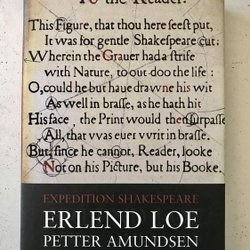 To the Reader.
This Figure, that thou here seest put,
It was for gentle Shakespeare cut:
Wherein the Grauer had a strife
with Nature, to out-doo the life :
O, could he but haue drawne his wit
As well in brasse, as he hath hit
His face, the Print would then surpasse
All, that vvas euer vvrit in brasse.
But, since he cannot, Reader, looke
Not on his Picture, but his Booke.
EXPEDITION SHAKESPEARE
ERLEND LOE
PETTER AMUNDSEN